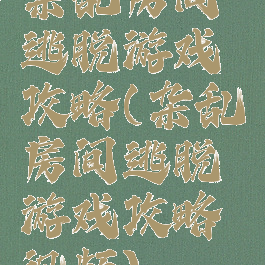 杂乱房间
逃脱游戏
攻略(杂乱
房间逃脱
游戏攻略
视频)